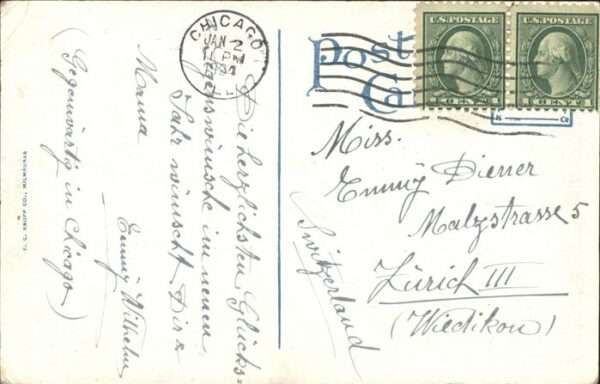 CHICAGO
JAN 2
11 PM
ILL.
Post
U.S. POSTAGE
1 CENT 1
U.S. POSTAGE
1 CENT 1
K Co
Die herzlichsten Glücks-
segenswünsche im neuen
Jahr wünscht Dir &
Mama
Emmy Wilhelm
(Gegenwärtig in Chicago)
Miss.
Emmy Diener
Malzstrasse 5
Zürich III
(Wiedikon)
Switzerland